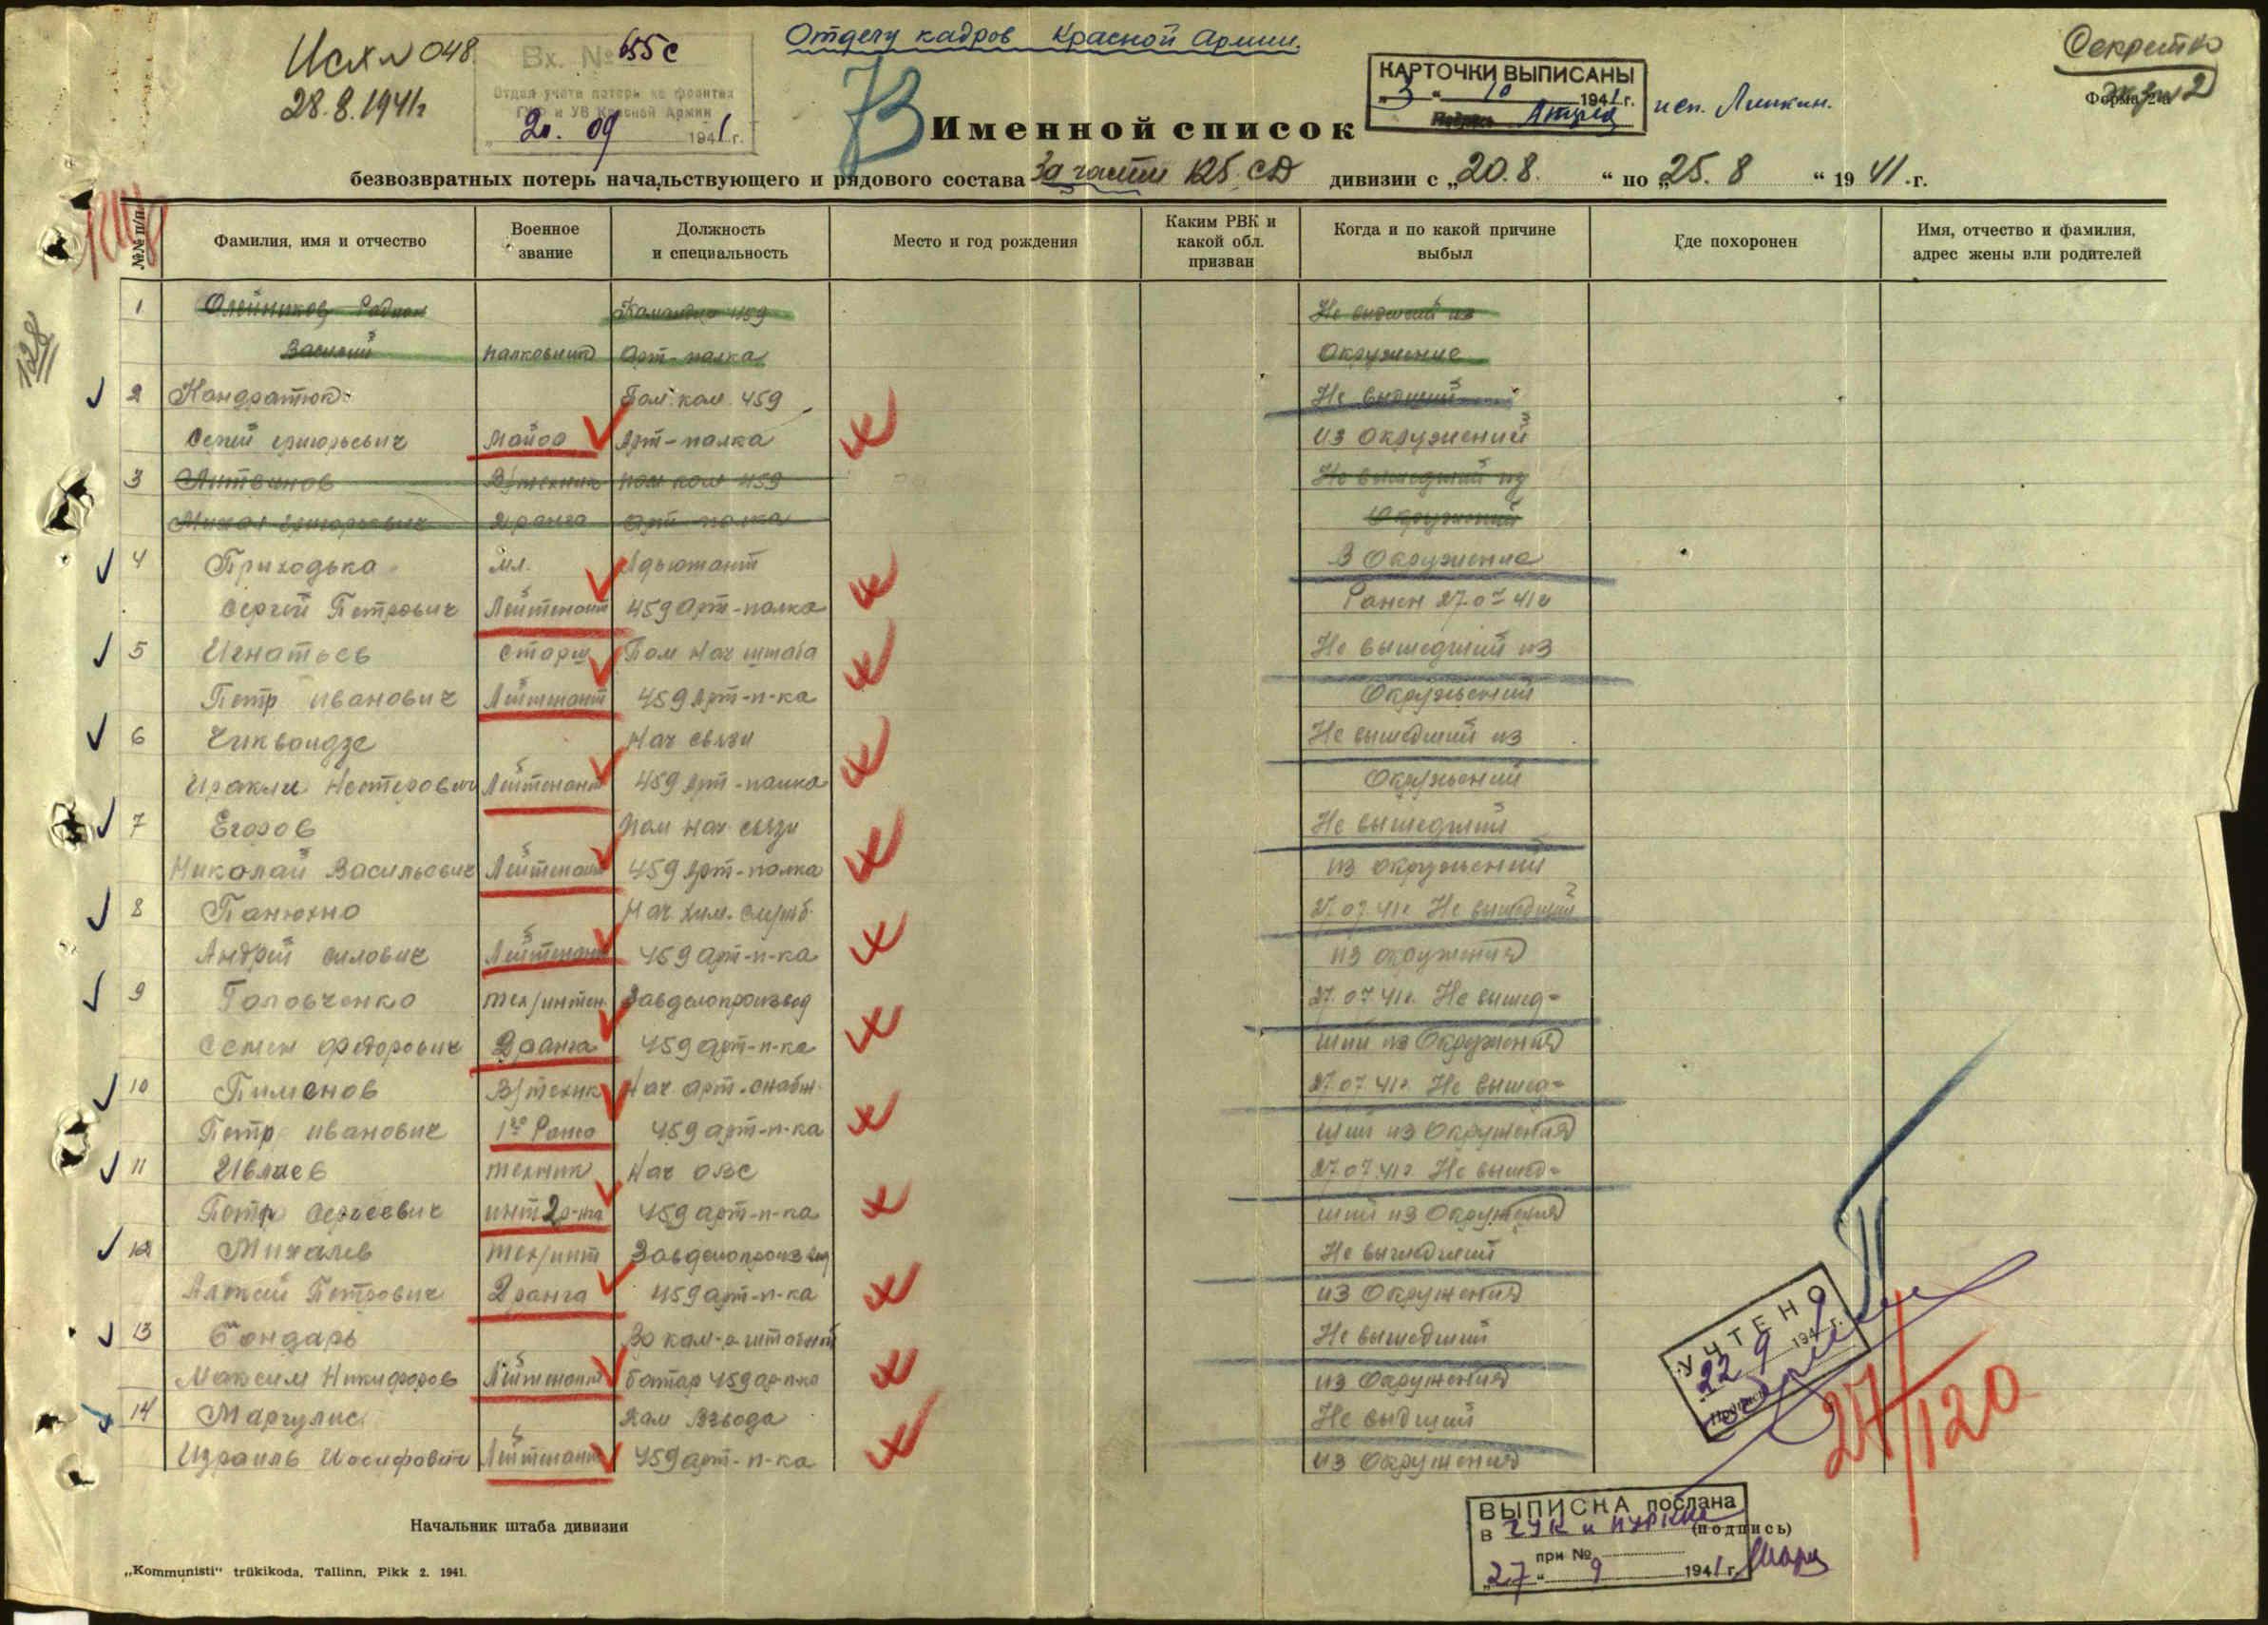 Отделу кадров Красной Армии.
Исх № 048
28.8.1941г
Вх. № 655с
Отдел учета потерь на фронтах
ГУФ и УВ Красной Армии
„ 20. 09 1941 г.
73
КАРТОЧКИ ВЫПИСАНЫ
„ 3 “ 10 1941 г.
исп.
Секретно
экз № 2
Форма 2-а
Именной список
безвозвратных потерь начальствующего и рядового состава За части 125 СД дивизии с „ 20.8. “ по „ 25. 8 “ 19 41 .г.
128
№№ п/п
Фамилия, имя и отчество
Военное звание
Должность и специальность
Место и год рождения
Каким РВК и какой обл. призван
Когда и по какой причине выбыл
Где похоронен
Имя, отчество и фамилия, адрес жены или родителей
1 Олейников Родион Командир 459 Не вышедший из
Василий палковник Арт-палка Окружение
2 Кондратюк Пом. ком. 459 Не выдший
Сергей григорьевич Майор Арт-палка из окружений
3 Литвинов В/техник пом ком 459 Не вышедший из
григорьевич 2 ранга Арт палка Окружений
4 Приходька мл. Адьютант В Окружение
Сергей Петрович Лейтенант 459 Арт-палка Ранен 27-07 41г
5 Игнатьев Старш Пом Нач штаба Не вышедший из
Петр иванович Лейтенант 459 Арт-п-ка Окружений
6 Чиквоидзе Нач связи Не вышедший из
Иракли Нестерович Лейтенант 459 Арт-палка Окружений
7 Егоров Пом Нач. связи Не вышедший
Николай Васильевич Лейтенант 459 Арт-палка из окружений
8 Панюхно Нач. хим. служб. 27.07.41г. Не вышедший
Андрей силович Лейтенант 459 арт-п-ка из окружения
9 Головченко тех/интен. Завделопроизвод 27.07.41г. Не вышед-
Семен федорович 2 ранга 459 арт-п-ка ший из Окружения
10 Пименов В/техник Нач. арт. снабж. 27.07.41г. Не вышед-
Петр иванович 1го Ранга 459 арт-п-ка ший из Окружения
11 Ивлиев техник Нач ОВС 27.07.41г. Не вышед-
Петр Сергеевич инт 2 р-нга 459 арт-п-ка ший из Окружения
12 Михалев тех/инт Завделопроизвод Не вышедший
Алексей Петрович 2 ранга 459 арт-п-ка из Окружения
13 Бондарь Не вышедший
Максим Никифоров Лейтенант батар 459 из Окружения
14 Маргулис Ком Взвода Не выдший
Израиль Иосифович Лейтенант 459 арт-п-ка из Окружения
УЧТЕНО
22 9 194 г.
27/120
Начальник штаба дивизии
(подпись)
ВЫПИСКА послана
в ГУК и
при №
„ 27 “ 9 1941 г.
„Kommunisti“ trükikoda, Tallinn, Pikk 2. 1941.